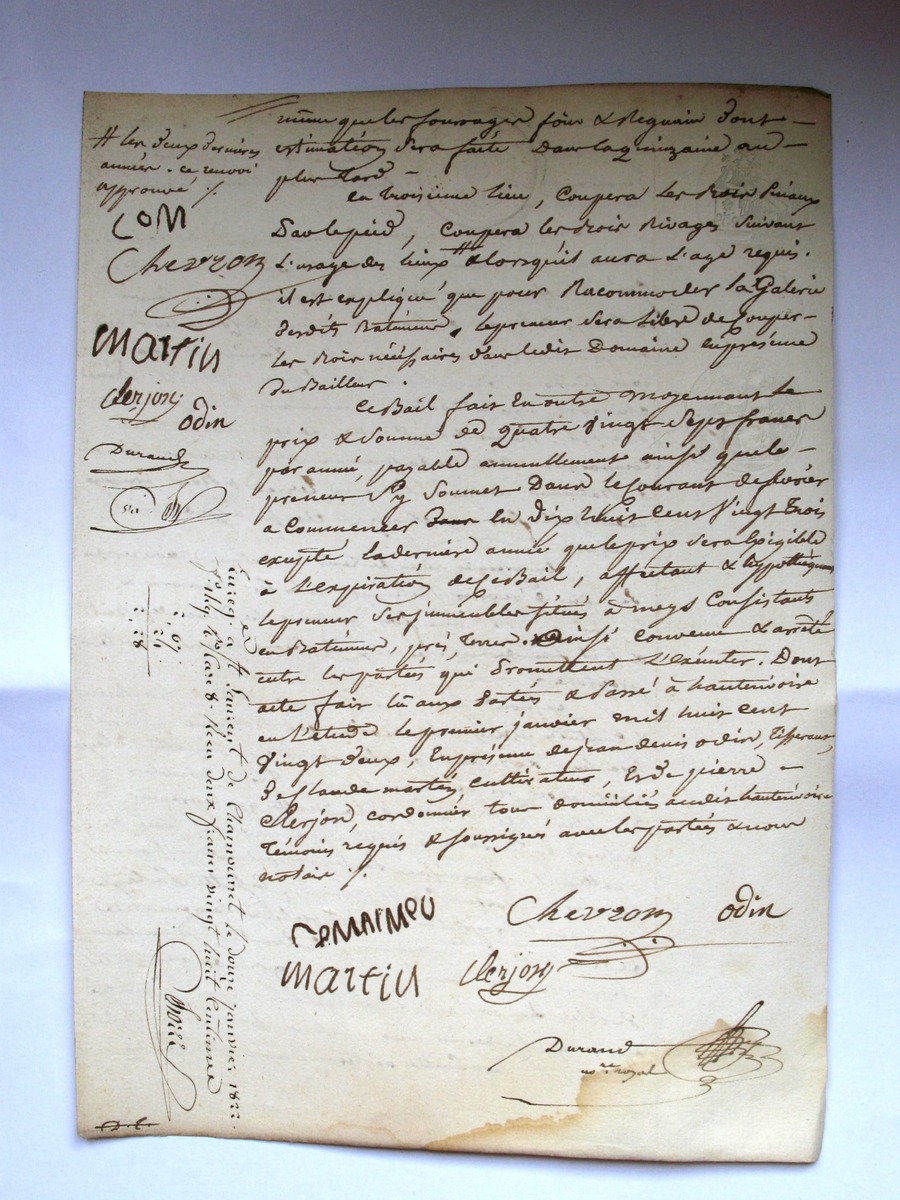 même que les fourrages foin & Regnain dont
estimation sera faite dans la quinzaine au
plus tard
en troisieme lieu, Coupera les bois
, Coupera les bois Rivages Suivant
L'usage des lieux # & lorsqu'il aura L'age requis.
il est expliqué que pour Racommoder la Galerie
desdits Batimens, le preneur sera libre de Couper
les bois nécessaires dans ledit Domaine en présence
du Bailleur
Ce Bail fait En outre moyennant le
prix & Somme de quatre Vingt Sept francs
par année, payable annuellement ainsi que le
preneur s'y Soumet Dans le Courant de février
a Commencer En dix huit Cent Vingt Trois
excepté la dernière année que le prix sera Exigible
à L'expiration de ce Bail, affectant & hypothéquant
le preneur ses immeubles situés à meys Consistants
en Batimens, prés, Terres. Ainsi Convenu & arrêté
entre les parties qui Promettent L'exécuter. Dont
acte fait lu aux Parties & Passé à hauterivoire
en L'etude le premier janvier mil huit cent
Vingt deux, En présence de jean denis odin, Tisserant,
de Claude martin, Cultivateur, Et de pierre
Clerjon, cordonnier tous domiciliés audit hauterivoire
Témoins requis & soussignés avec les parties & nous
notaire ./.
# les deux dernieres
années. ce renvoi
approuvé ./.
COM
Chevron
Martin
Clerjon
odin
Durand
Chevron odin
Martin Clerjon
Durand
nre royal
Enreg. à St Laurent de Chamousset le douze janvier 1822.
deux francs vingt huit centimes
2, 07
21
2, 28